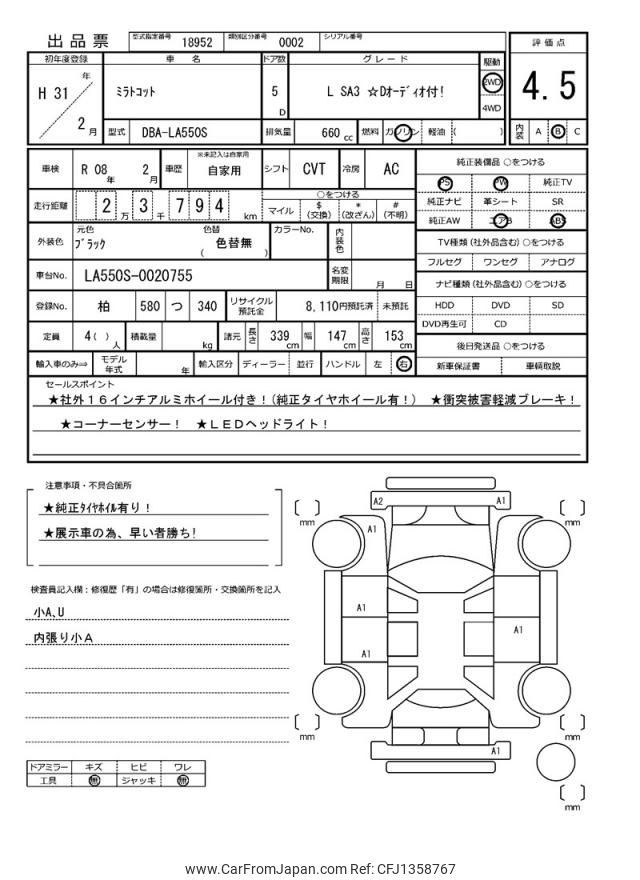 出品票 型式指定番号 18952 類別区分番号 0002 シリアル番号
評価点
4.5
内装 A B C
初年度登録 車名 ドア数 グレード 駆動
H 31 年 2 月
ミラトコット 5 D L SA3 ☆Dオーディオ付! 2WD 4WD
型式 DBA-LA550S 排気量 660 cc 燃料 ガソリン 軽油 ( )
車検 R 08 年 2 月 車歴 ※未記入は自家用 自家用 シフト CVT 冷房 AC
走行距離 2 万 3 千 7 9 4 km
○をつける
マイル $ (交換) * (改ざん) # (不明)
外装色 元色 ブラック 色替 ( 色替無 ) カラーNo. 内装色
車台No. LA550S-0020755 名変期限 月 日
登録No. 柏 580 つ 340 リサイクル預託金 8,110円預託済 未預託
定員 4 ( ) 人 積載量 kg 諸元 長さ 339 cm 幅 147 cm 高さ 153 cm
輸入車のみ⇒ モデル年式 年 輸入区分 ディーラー 並行 ハンドル 左 右
純正装備品 ○をつける
PS PW 純正TV
純正ナビ 革シート SR
純正AW エアB ABS
TV種類 (社外品含む) ○をつける
フルセグ ワンセグ アナログ
ナビ種類 (社外品含む) ○をつける
HDD DVD SD
DVD再生可 CD
後日発送品 ○をつける
新車保証書 車輌取説
セールスポイント
★社外16インチアルミホイール付き!(純正タイヤホイール有!) ★衝突被害軽減ブレーキ!
★コーナーセンサー! ★LEDヘッドライト!
注意事項・不具合箇所
★純正タイヤホイル有り!
★展示車の為、早い者勝ち!
検査員記入欄:修復歴「有」の場合は修復箇所・交換箇所を記入
小A,U
内張り小A
ドアミラー キズ ヒビ ワレ
工具 無 ジャッキ 無
A2 A1
A1
A1
A1
A1
A1
mm
mm
mm
mm
mm
www.CarFromJapan.com Ref: CFJ1358767